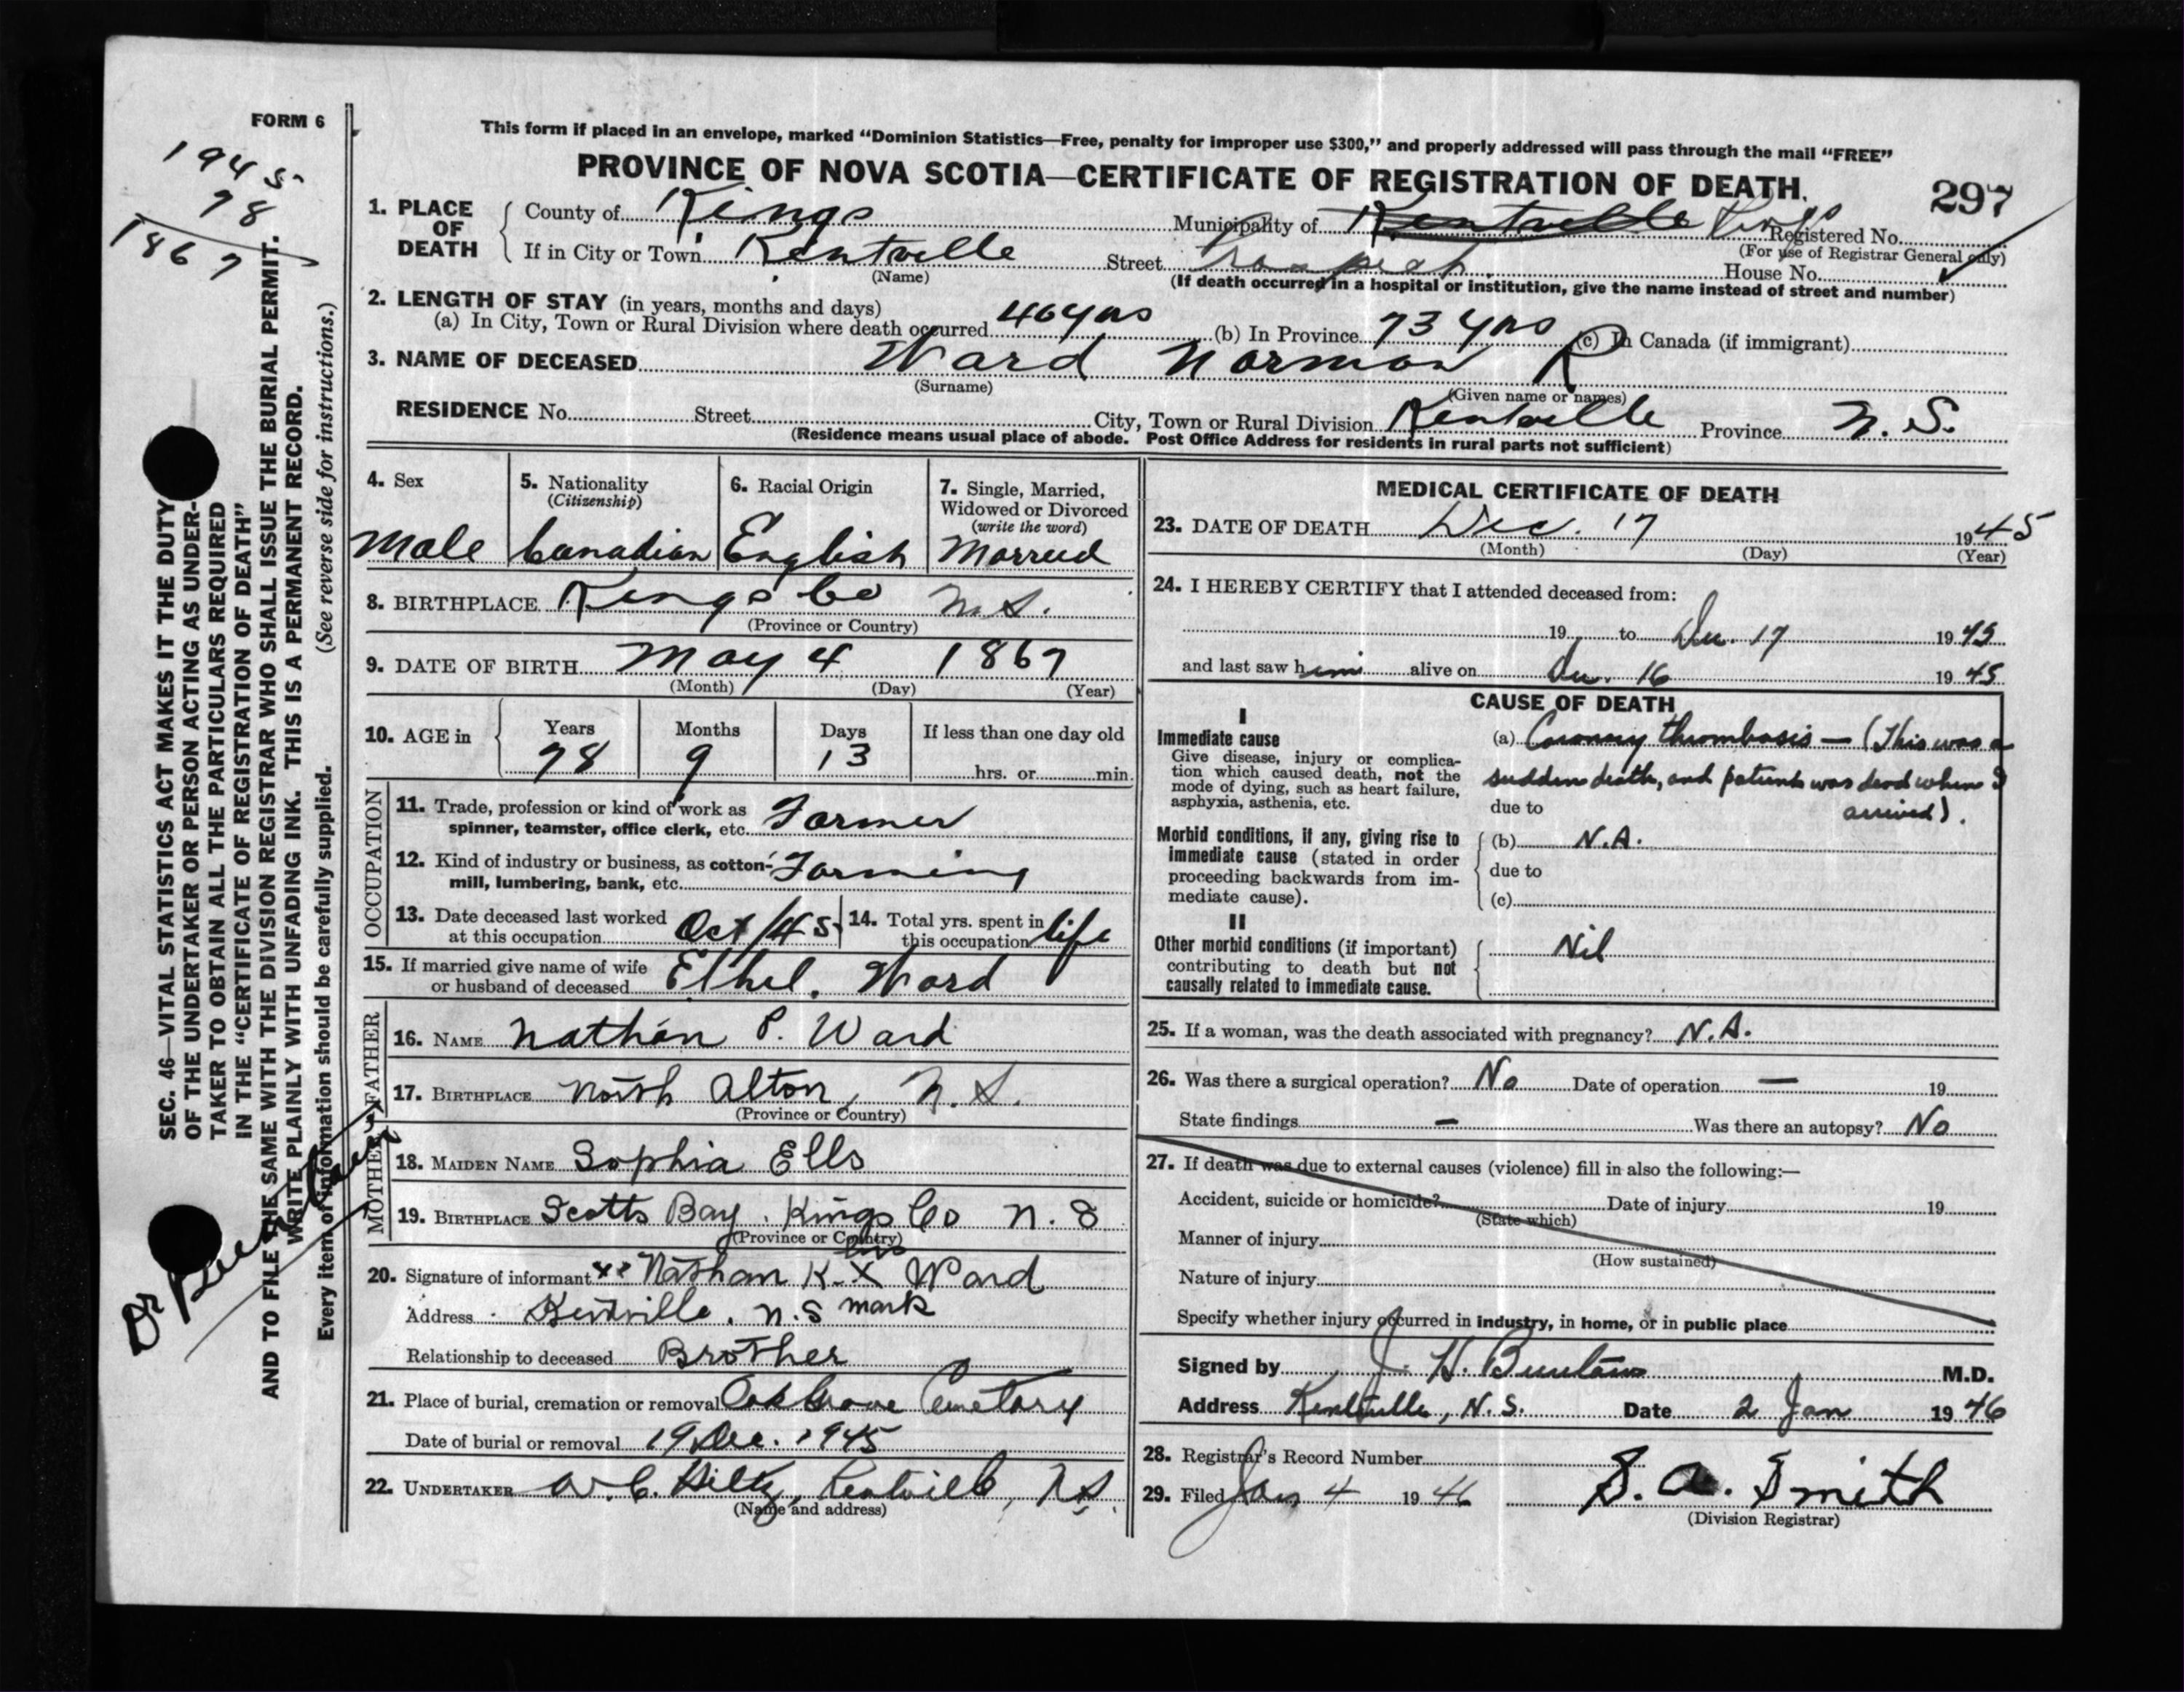 FORM 6
1945
78
1867
This form if placed in an envelope, marked “Dominion Statistics—Free, penalty for improper use $300,” and properly addressed will pass through the mail “FREE”
PROVINCE OF NOVA SCOTIA—CERTIFICATE OF REGISTRATION OF DEATH.
297
1. PLACE OF DEATH
County of Kings Municipality of Kentville Registered No.
(For use of Registrar General only)
If in City or Town Kentville Street House No.
(Name)
(If death occurred in a hospital or institution, give the name instead of street and number)
2. LENGTH OF STAY (in years, months and days)
(a) In City, Town or Rural Division where death occurred 40 yrs (b) In Province 73 yrs (c) In Canada (if immigrant)
3. NAME OF DECEASED Ward Norman R
(Surname) (Given name or names)
RESIDENCE No. Street City, Town or Rural Division Kentville Province N. S.
(Residence means usual place of abode. Post Office Address for residents in rural parts not sufficient)
4. Sex
Male
5. Nationality
(Citizenship)
Canadian
6. Racial Origin
English
7. Single, Married,
Widowed or Divorced
(write the word)
Married
8. BIRTHPLACE Kings Co N.S.
(Province or Country)
9. DATE OF BIRTH May 4 1867
(Month) (Day) (Year)
10. AGE in Years Months Days If less than one day old
78 9 13 hrs. or min.
OCCUPATION
11. Trade, profession or kind of work as
spinner, teamster, office clerk, etc. Farmer
12. Kind of industry or business, as cotton-
mill, lumbering, bank, etc. Farming
13. Date deceased last worked
at this occupation Oct/45
14. Total yrs. spent in
this occupation life
15. If married give name of wife
or husband of deceased Ethel Ward
FATHER
16. NAME Nathan P. Ward
17. BIRTHPLACE North Alton, N.S.
(Province or Country)
MOTHER
18. MAIDEN NAME Sophia Ells
19. BIRTHPLACE Scotts Bay, Kings Co N.S
(Province or Country)
his
20. Signature of informant Nathan K. X Ward
mark
Address Kentville, N.S
Relationship to deceased Brother
21. Place of burial, cremation or removal Oak Grove Cemetary
Date of burial or removal 19 Dec. 1945
22. UNDERTAKER W. C. Hiltz, Kentville, N.S.
(Name and address)
MEDICAL CERTIFICATE OF DEATH
23. DATE OF DEATH Dec. 17 1945
(Month) (Day) (Year)
24. I HEREBY CERTIFY that I attended deceased from:
19 to Dec. 17 1945
and last saw him alive on Dec. 16 1945
CAUSE OF DEATH
I
Immediate cause
Give disease, injury or complica-
tion which caused death, not the
mode of dying, such as heart failure,
asphyxia, asthenia, etc.
(a) Coronary thrombosis — (This was a
sudden death, and patient was dead when I
due to arrived).
Morbid conditions, if any, giving rise to
immediate cause (stated in order
proceeding backwards from im-
mediate cause).
(b) N.A.
due to
(c)
II
Other morbid conditions (if important)
contributing to death but not
causally related to immediate cause.
Nil
25. If a woman, was the death associated with pregnancy? N.A.
26. Was there a surgical operation? No Date of operation — 19
State findings — Was there an autopsy? No
27. If death was due to external causes (violence) fill in also the following:—
Accident, suicide or homicide? Date of injury 19
(State which)
Manner of injury
(How sustained)
Nature of injury
Specify whether injury occurred in industry, in home, or in public place
Signed by J. H. M.D.
Address Kentville, N.S. Date 2 Jan 1946
28. Registrar's Record Number
29. Filed Jan 4 1946 S. A. Smith
(Division Registrar)
SEC. 46—VITAL STATISTICS ACT MAKES IT THE DUTY
OF THE UNDERTAKER OR PERSON ACTING AS UNDER-
TAKER TO OBTAIN ALL THE PARTICULARS REQUIRED
IN THE “CERTIFICATE OF REGISTRATION OF DEATH”
AND TO FILE THE SAME WITH THE DIVISION REGISTRAR WHO SHALL ISSUE THE BURIAL PERMIT.
WRITE PLAINLY WITH UNFADING INK. THIS IS A PERMANENT RECORD.
Every item of information should be carefully supplied. (See reverse side for instructions.)
Dr